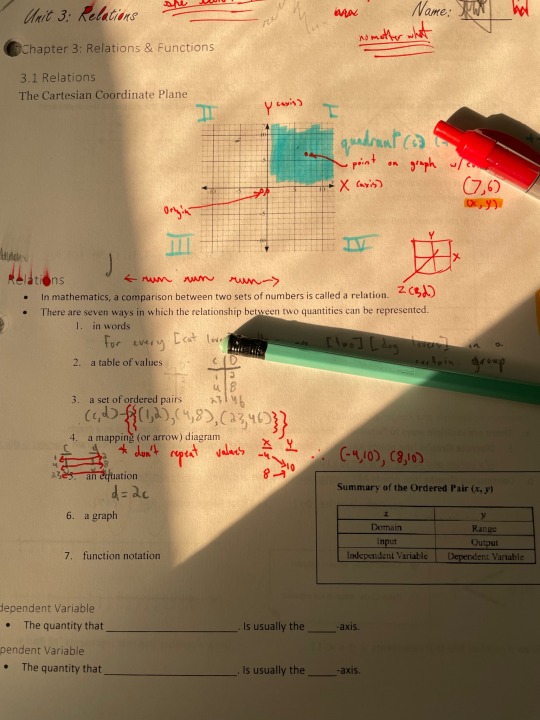 Unit 3: Relations
Name:
no matter what
Chapter 3: Relations & Functions
3.1 Relations
The Cartesian Coordinate Plane
II
Y (axis)
I
quadrant
point on graph w/
X (axis)
(7,6)
(x,y)
Origin
III
IV
Y
X
Z (3,d)
Relations
← run run run →
• In mathematics, a comparison between two sets of numbers is called a relation.
• There are seven ways in which the relationship between two quantities can be represented.
1. in words
For every [cat [two] [dog lovers] in a
certain group
2. a table of values
C D
1 2
4 8
23 46
3. a set of ordered pairs
(c,d)={(1,2),(4,8),(23,46)}
4. a mapping (or arrow) diagram
* don't repeat values
X Y
-4
10
8
∴ (-4,10), (8,10)
C d
5. an equation
d=2c
6. a graph
7. function notation
Summary of the Ordered Pair (x, y)
x y
Domain Range
Input Output
Independent Variable Dependent Variable
dependent Variable
• The quantity that ____________________. Is usually the ____-axis.
pendent Variable
• The quantity that ____________________. Is usually the ____-axis.